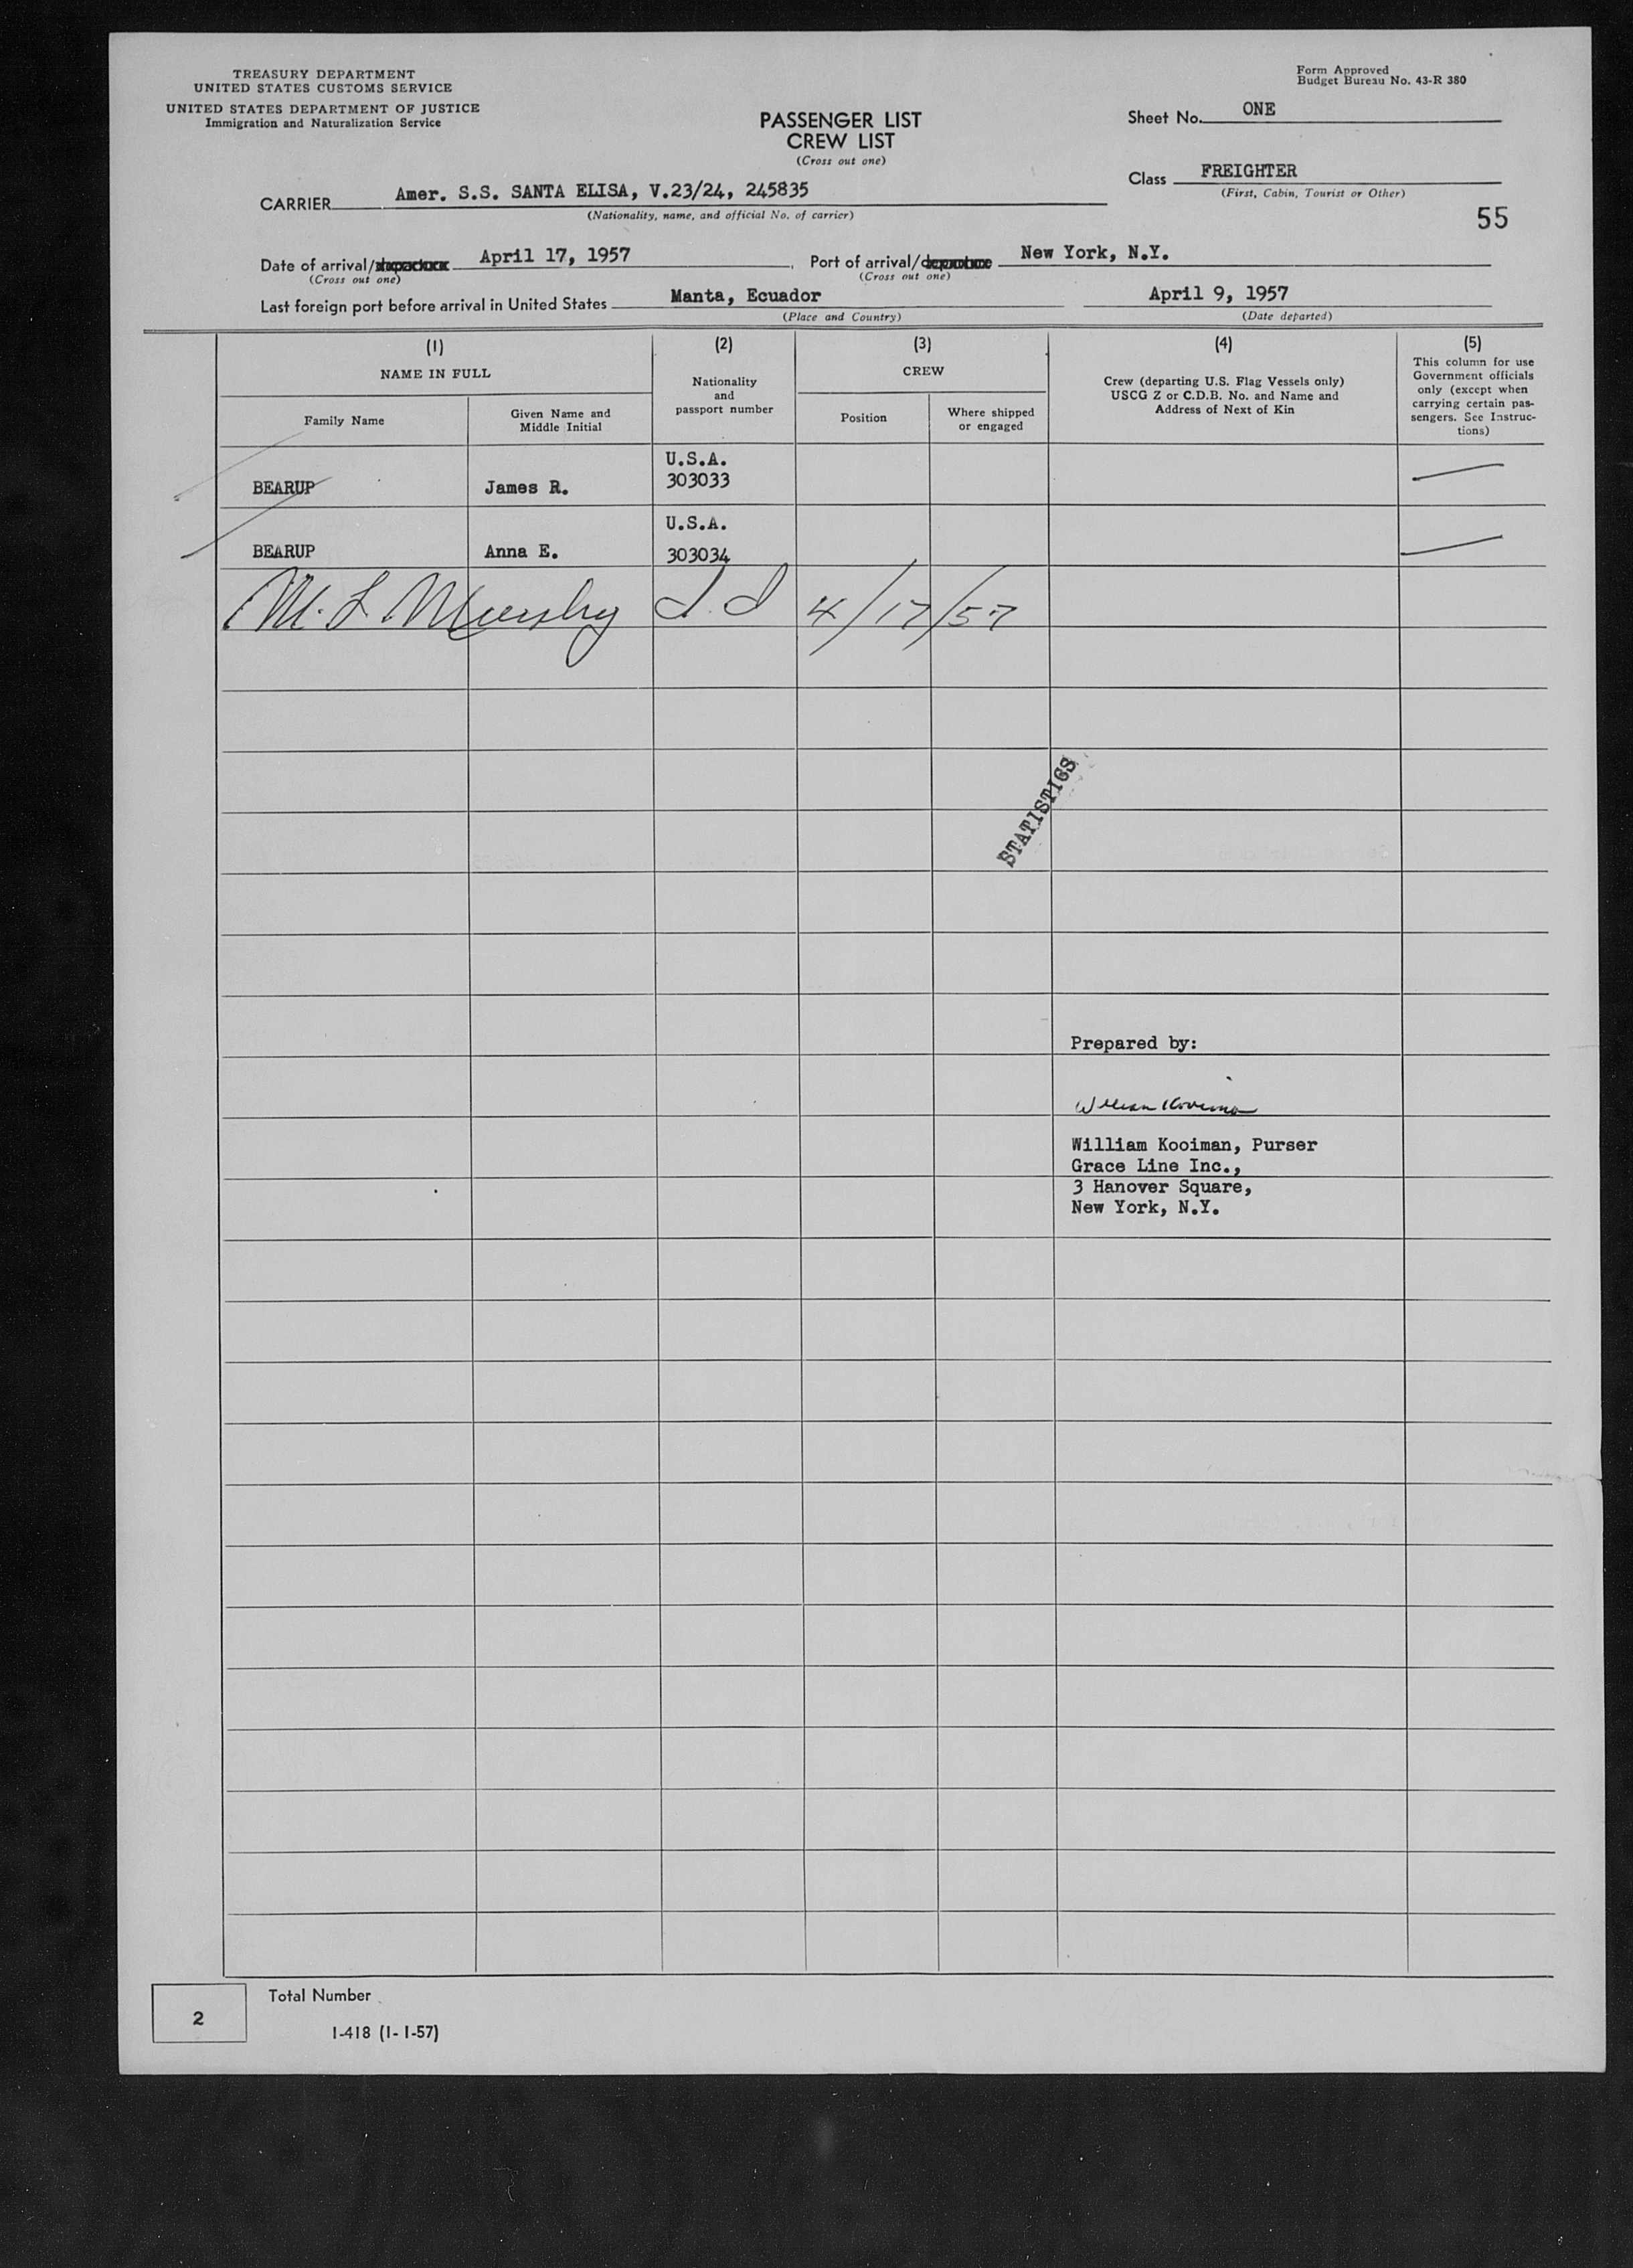 TREASURY DEPARTMENT
UNITED STATES CUSTOMS SERVICE
UNITED STATES DEPARTMENT OF JUSTICE
Immigration and Naturalization Service
PASSENGER LIST
CREW LIST
(Cross out one)
Form Approved
Budget Bureau No. 43-R 380
Sheet No. ONE
Class FREIGHTER
(First, Cabin, Tourist or Other)
55
CARRIER Amer. S.S. SANTA ELISA, V.23/24, 245835
(Nationality, name, and official No. of carrier)
Date of arrival/ April 17, 1957 Port of arrival/ New York, N.Y.
(Cross out one) (Cross out one)
Last foreign port before arrival in United States Manta, Ecuador April 9, 1957
(Place and Country) (Date departed)
(1) (2) (3) (4) (5)
NAME IN FULL
Family Name
Given Name and
Middle Initial
Nationality
and
passport number
CREW
Position
Where shipped
or engaged
Crew (departing U.S. Flag Vessels only)
USCG Z or C.D.B. No. and Name and
Address of Next of Kin
This column for use
Government officials
only (except when
carrying certain pas-
sengers. See Instruc-
tions)
U.S.A.
BEARUP James R. 303033
U.S.A.
BEARUP Anna E. 303034
4/17/57
STATISTICS
Prepared by:
William Kooiman, Purser
Grace Line Inc.,
3 Hanover Square,
New York, N.Y.
2 Total Number
I-418 (1-1-57)